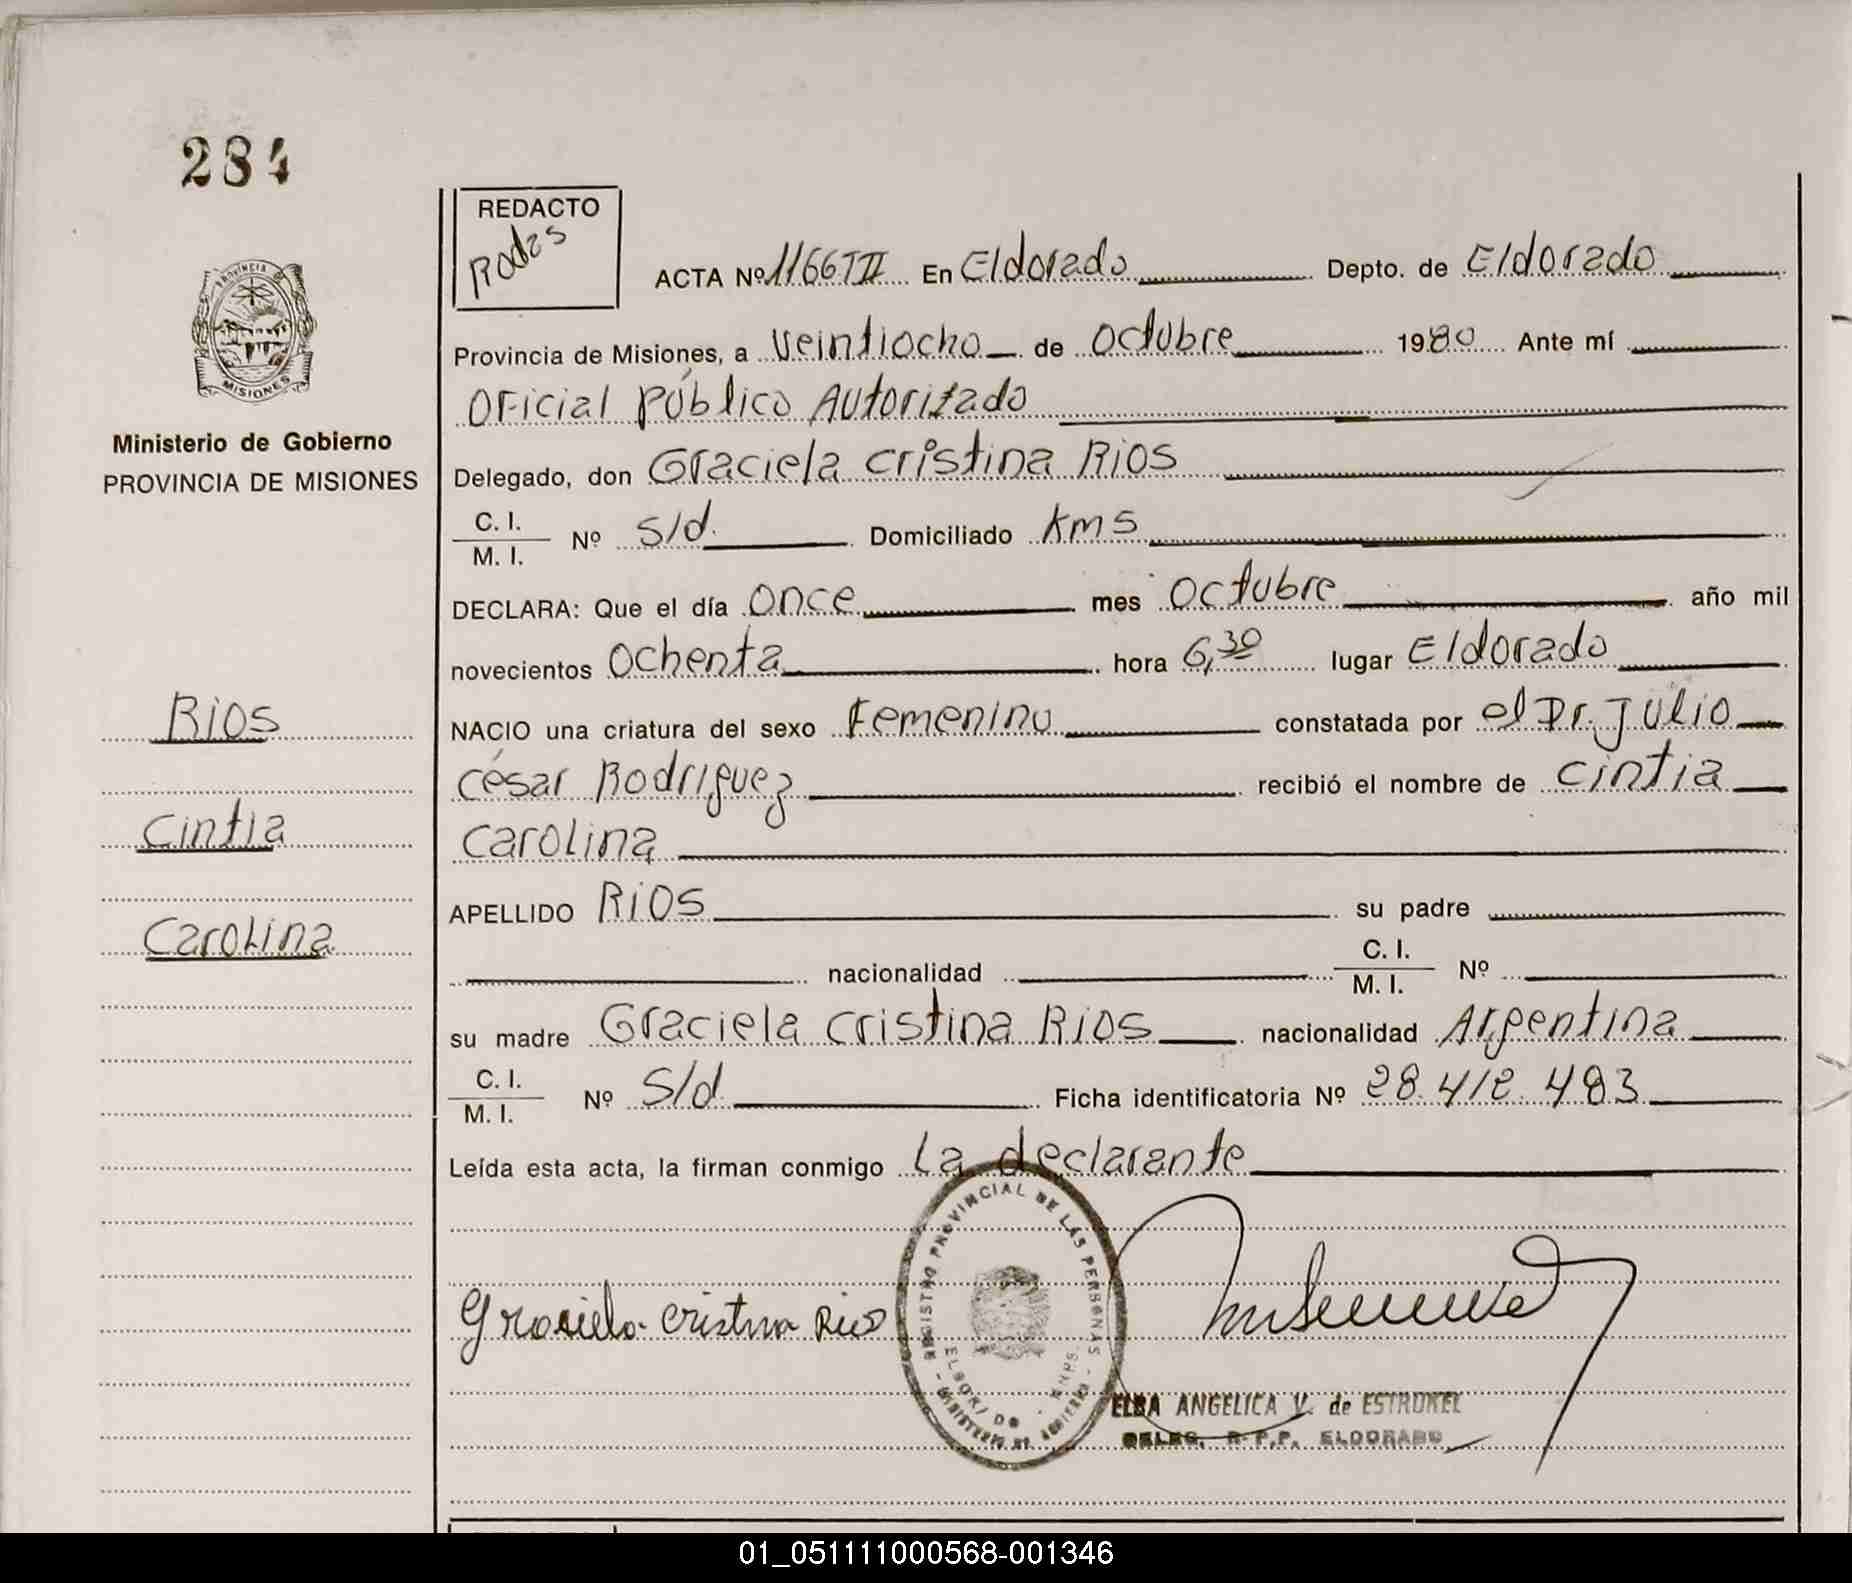 284
REDACTO
Rodas
ACTA Nº 1166 TII En Eldorado Depto. de Eldorado
Provincia de Misiones, a veintiocho de octubre 1980 Ante mí
Oficial Público Autorizado
Delegado, don Graciela Cristina Rios
C. I.
M. I.
Nº s/d. Domiciliado kms
DECLARA: Que el día once mes octubre año mil
novecientos ochenta hora 6,30 lugar Eldorado
NACIO una criatura del sexo Femenino constatada por el Dr. Julio
César Rodriguez recibió el nombre de Cintia
Carolina
APELLIDO Rios su padre
nacionalidad C. I.
M. I. Nº
su madre Graciela Cristina Rios nacionalidad Argentina
C. I.
M. I.
Nº S/d Ficha identificatoria Nº 28.412.483
Leída esta acta, la firman conmigo la declarante
Graciela Cristina Rios
REGISTRO PROVINCIAL DE LAS PERSONAS
ELDORADO
MNES.
- MINISTERIO DE GOBIERNO -
ELBA ANGELICA V. de ESTRUKEL
DELEG. R. P.P. ELDORADO
PROVINCIA
MISIONES
Ministerio de Gobierno
PROVINCIA DE MISIONES
Rios
Cintia
Carolina
01_051111000568-001346